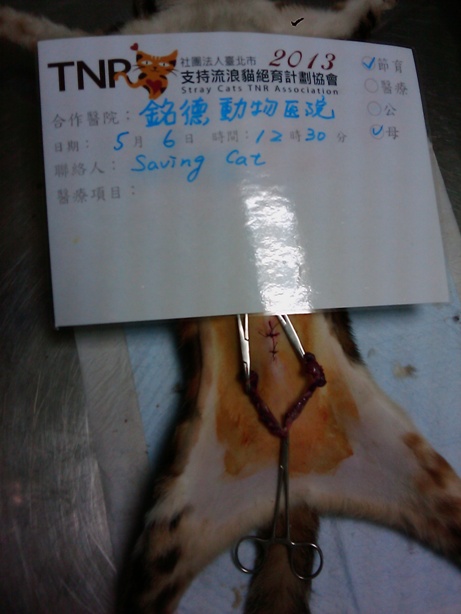 TNR 社團法人臺北市 2013
支持流浪貓絕育計劃協會
Stray Cats TNR Association
節育
醫療
公
母
合作醫院：銘德動物医院
日期： 5 月 6 日 時間：12 時 30 分
聯絡人： Saving Cat
醫療項目：